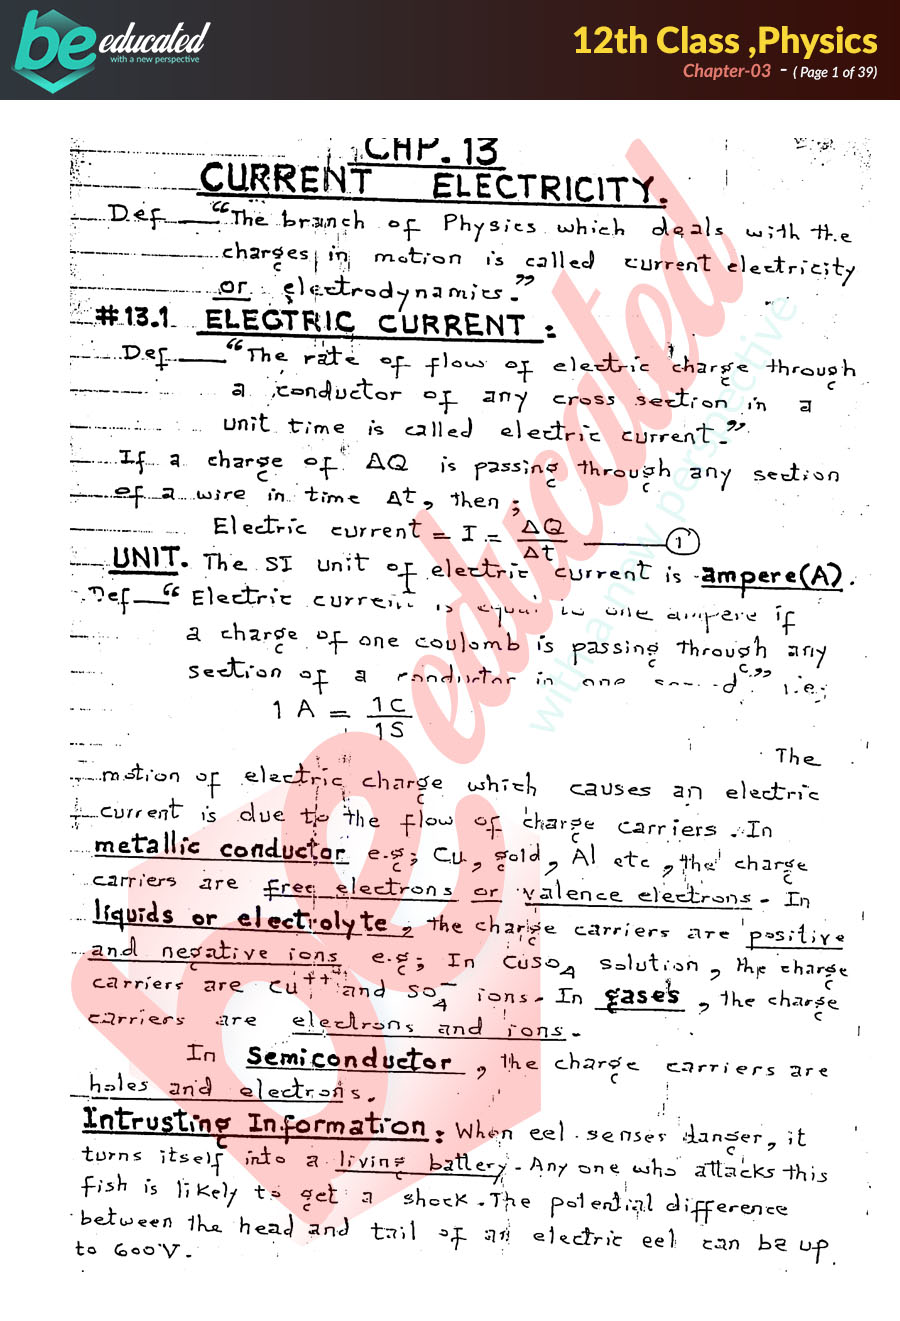 be educated
with a new perspective
12th Class ,Physics
Chapter-03 - ( Page 1 of 39)
CHP. 13
CURRENT ELECTRICITY.
Def — "The branch of Physics which deals with the
charges in motion is called current electricity
or electrodynamics."
#13.1 ELECTRIC CURRENT :
Def — "The rate of flow of electric charge through
a conductor of any cross section in a
unit time is called electric current."
If a charge of ΔQ is passing through any section
of a wire in time Δt, then ;
Electric current = I = ΔQ/Δt — (1)
UNIT. The SI unit of electric current is ampere(A).
Def — "Electric current is equal to one ampere if
a charge of one coulomb is passing through any
section of a conductor in one second." i.e;
1 A = 1C/1S
The
motion of electric charge which causes an electric
current is due to the flow of charge carriers. In
metallic conductor e.g; Cu, gold, Al etc, the charge
carriers are free electrons or valence electrons. In
liquids or electrolyte, the charge carriers are positive
and negative ions e.g; In CuSO4 solution, the charge
carriers are Cu++ and SO4-- ions. In gases, the charge
carriers are electrons and ions.
In Semiconductor, the charge carriers are
holes and electrons.
Intrusting Information: When eel senses danger, it
turns itself into a living battery. Any one who attacks this
fish is likely to get a shock. The potential difference
between the head and tail of an electric eel can be up
to 600V.
be educated
with a new perspective